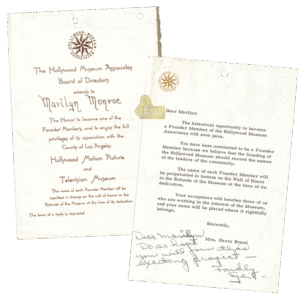 The Hollywood Museum Associates
Board of Directory
extends to
Marilyn Monroe
The Honor to become one of the
Founder Members, and to enjoy the full
privileges of its association with the
County of Los Angeles
Hollywood Motion Picture
and
Television Museum
The name of each Founder Member will be
inscribed in bronze on the wall of honor in the
Rotunda of the Museum at the time of its dedication.
The favor of a reply is requested
Dear Marilyn:
The historical opportunity to become
a Founder Member of the Hollywood Museum
Associates will soon pass.
You have been nominated to be a Founder
Member because we believe that the founding of
the Hollywood Museum should record the names
of the leaders of the community.
The name of each Founder Member will
be perpetuated in bronze on the Wall of Honor
in the Rotunda of the Museum at the time of its
dedication.
Your acceptance will hearten those of us
who are working in the interest of the Museum,
and your name will be placed where it rightfully
belongs.
Sincerely,
Mrs. Harry Brand
Dear Marilyn
Do so hope
you will join this
exciting project —
Fondly